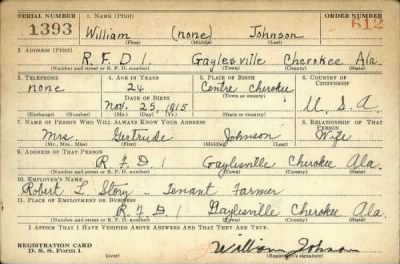 SERIAL NUMBER 1. NAME (Print) ORDER NUMBER
1393 William (none) Johnson 612
(First) (Middle) (Last)
2. ADDRESS (Print)
R. F. D 1. Gaylesville Cherokee Ala.
(Number and street or R. F. D. number) (Town) (County) (State)
3. TELEPHONE 4. AGE IN YEARS 5. PLACE OF BIRTH 6. COUNTRY OF CITIZENSHIP
none 24 Centre Cherokee
DATE OF BIRTH (Town or county)
Nov. 25, 1915 U. S. A.
(Exchange) (Number) (Mo.) (Day) (Yr.) (State or country)
7. NAME OF PERSON WHO WILL ALWAYS KNOW YOUR ADDRESS 8. RELATIONSHIP OF THAT PERSON
Mrs. Gertrude Johnson Wife
(Mr., Mrs., Miss) (First) (Middle) (Last)
9. ADDRESS OF THAT PERSON
R. F D 1 Gaylesville Cherokee Ala.
(Number and street or R. F. D. number) (Town) (County) (State)
10. EMPLOYER'S NAME
Robert L Tenant Farmer
11. PLACE OF EMPLOYMENT OR BUSINESS
R. F. D. 1 Gaylesville Cherokee Ala.
(Number and street or R. F. D. number) (Town) (County) (State)
I AFFIRM THAT I HAVE VERIFIED ABOVE ANSWERS AND THAT THEY ARE TRUE.
REGISTRATION CARD William Johnson
D. S. S. Form 1 (over) (Registrant's signature)